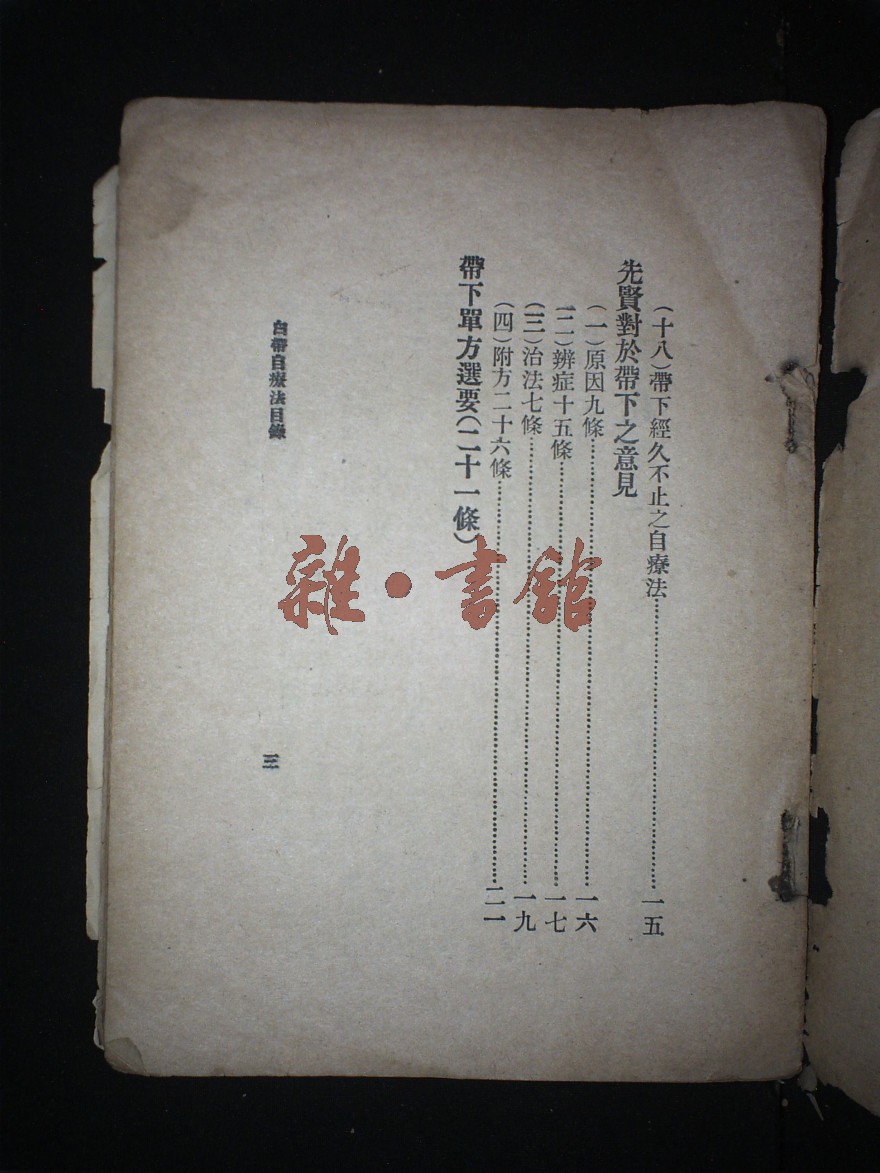 (十八)帶下經久不止之自療法……一五
先賢對於帶下之意見
(一)原因九條……一六
(二)辨症十五條……一七
(三)治法七條……一九
(四)附方二十六條……二一
帶下單方選要(二十一條)
白帶自療法目錄
三
雜·書館